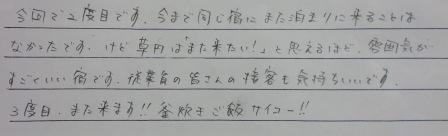 今回で2度目です。今まで同じ宿にまた泊まりに来ることは
なかったです。けど草円は「また来たい!」と思えるほど、雰囲気が
すごくいい宿です。従業員の皆さんの接客も気持ちいいです。
3度目、また来ます!! 釜炊きご飯サイコー!!